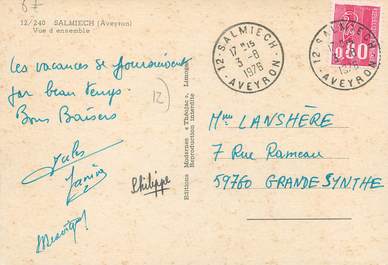 12/240 SALMIECH (Aveyron)
Vue d'ensemble
Les vacances se poursuivent
par beau temps.
Bons Baisers
Jules
Janine
Philippe
12
Editions Modernes « Théojac », Limoges
Reproduction interdite
12 - SALMIECH - AVEYRON
17 H15
3 - 8
1976
0,80
Mme LANSHÈRE
7 Rue Rameau
59760 GRANDE SYNTHE